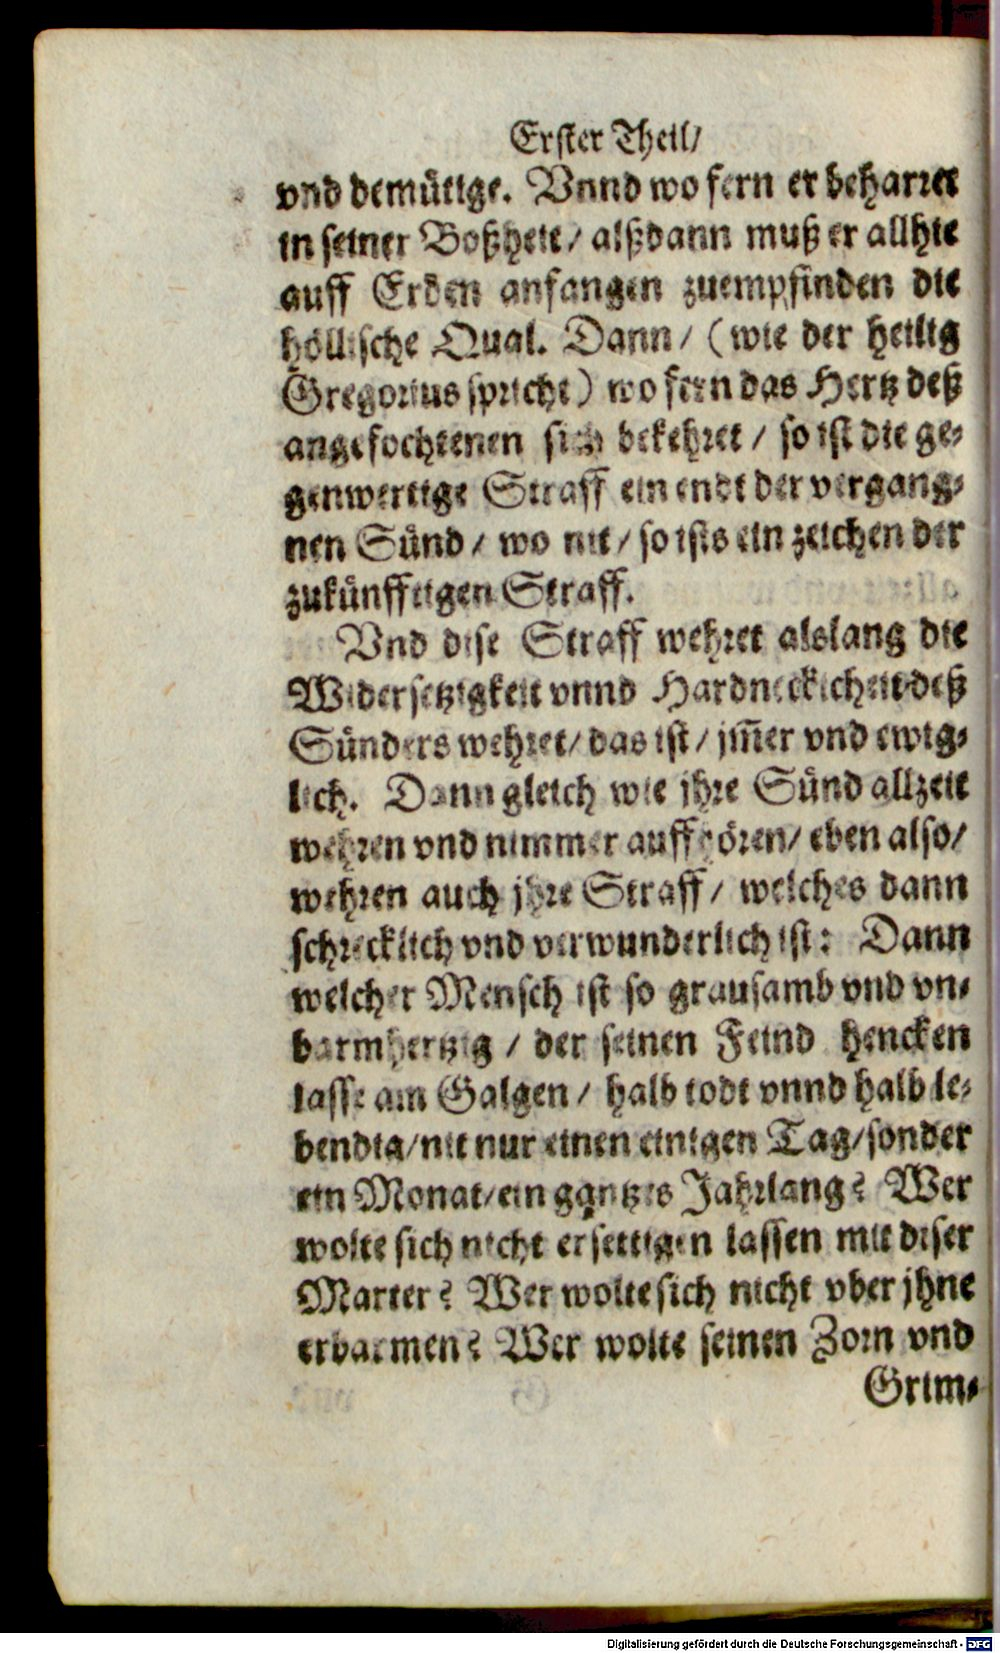 Erster Theil/
vnd demütige. Vnnd wo fern er beharret
in seiner Boßheit/ alßdann muß er allhie
auff Erden anfangen zuempfinden die
höllische Qual. Dann/ (wie der heilig
Gregorius spricht) wo fern das Hertz deß
angefochtenen sich bekehret/ so ist die ge-
genwertige Straff ein endt der vergang-
nen Sünd/ wo nit/ so ists ein zeichen der
zukünfftigen Straff.
Vnd dise Straff wehret alslang die
Widersetzigkeit vnnd Hardneckicheit deß
Sünders wehret/ das ist/ jm̄er vnd ewig-
lich. Dann gleich wie jhre Sünd allzeit
wehren vnd nimmer auffhören/ eben also/
wehren auch jhre Straff/ welches dann
schrecklich vnd verwunderlich ist: Dann
welcher Mensch ist so grausamb vnd vn-
barmhertzig/ der seinen Feind hencken
lasse am Galgen/ halb todt vnnd halb le-
bendig/ nit nur einen einigen Tag/ sonder
ein Monat/ ein gantzes Jahrlang? Wer
wolte sich nicht ersettigen lassen mit diser
Marter? Wer wolte sich nicht vber jhne
erbarmen? Wer wolte seinen Zorn vnd
Grim-
Digitalisierung gefördert durch die Deutsche Forschungsgemeinschaft - DFG